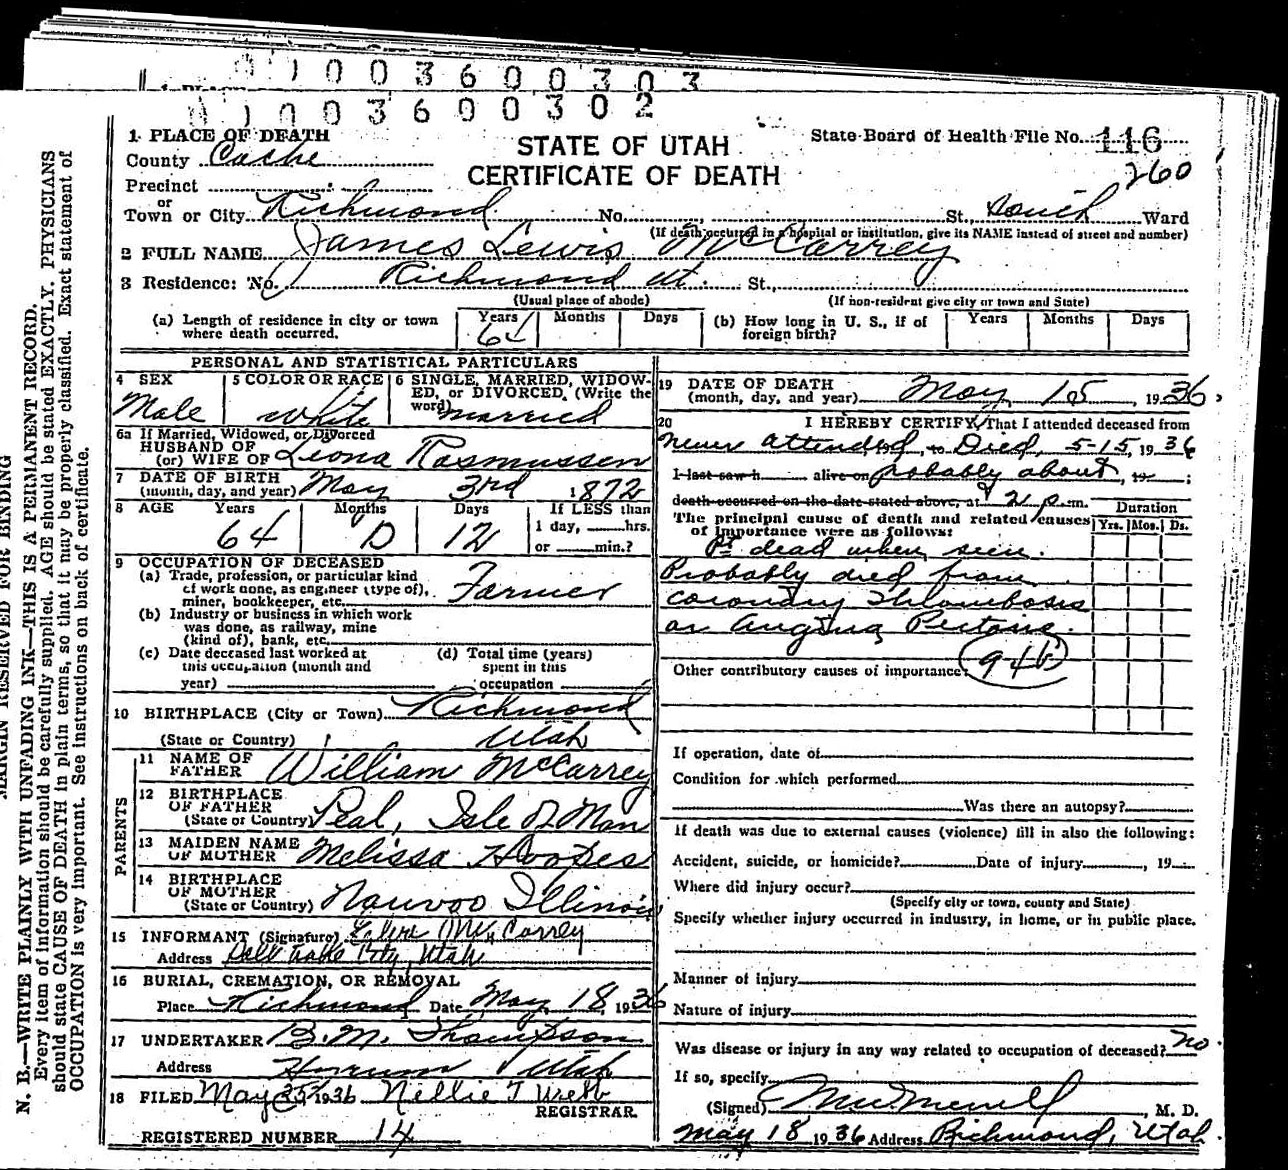 0 1 0 0 3 6 0 0 3 0 3
0 1 0 0 3 6 0 0 3 0 2
MARGIN RESERVED FOR BINDING
N. B.—WRITE PLAINLY WITH UNFADING INK—THIS IS A PERMANENT RECORD.
Every item of information should be carefully supplied. AGE should be stated EXACTLY. PHYSICIANS
should state CAUSE OF DEATH in plain terms, so that it may be properly classified. Exact statement of
OCCUPATION is very important. See instructions on back of certificate.
STATE OF UTAH
CERTIFICATE OF DEATH
State Board of Health File No. 116
260
1 PLACE OF DEATH
County Cache
Precinct
or
Town or City Richmond No. St., South Ward
(If death occurred in a hospital or institution, give its NAME instead of street and number)
2 FULL NAME James Lewis McCarrey
3 Residence: No. Richmond Ut. St.,
(Usual place of abode) (If non-resident give city or town and State)
(a) Length of residence in city or town where death occurred. Years 64 Months Days
(b) How long in U. S., if of foreign birth? Years Months Days
PERSONAL AND STATISTICAL PARTICULARS
4 SEX Male
5 COLOR OR RACE white
6 SINGLE, MARRIED, WIDOWED, or DIVORCED, (Write the word) married
6a If Married, Widowed, or Divorced
HUSBAND OF
(or) WIFE OF Leona Rasmussen
7 DATE OF BIRTH
(month, day, and year) May 3rd 1872
8 AGE Years 64 Months 0 Days 12
If LESS than
1 day, hrs.
or min.?
9 OCCUPATION OF DECEASED
(a) Trade, profession, or particular kind
of work done, as engineer (type of),
miner, bookkeeper, etc. Farmer
(b) Industry or business in which work
was done, as railway, mine
(kind of), bank, etc.
(c) Date deceased last worked at
this occupation (month and
year)
(d) Total time (years)
spent in this
occupation
10 BIRTHPLACE (City or Town) Richmond
(State or Country) Utah
PARENTS
11 NAME OF
FATHER William McCarrey
12 BIRTHPLACE
OF FATHER
(State or Country) Peal, Isle of Man
13 MAIDEN NAME
OF MOTHER Melissa Hoopes
14 BIRTHPLACE
OF MOTHER
(State or Country) Nauvoo Illinois
15 INFORMANT (Signature) McCarrey
Address Salt Lake City, Utah
16 BURIAL, CREMATION, OR REMOVAL
Place Richmond Date May 18, 1936
17 UNDERTAKER B.M. Thompson
Address Utah
18 FILED May 1936 Nellie T Webb
REGISTRAR
REGISTERED NUMBER 14
19 DATE OF DEATH
(month, day, and year) May 15, 1936
20 I HEREBY CERTIFY, That I attended deceased from
never attended, to Died, 5-15, 1936
I last saw h alive on probably about, 19 ;
death occurred on the date stated above, at 2 p.m.
The principal cause of death and related causes
of importance were as follows:
Duration
Yrs. Mos. Ds.
Pt dead when seen.
Probably died from
Coronary Thrombosis
or Angina Pectoris.
Other contributory causes of importance:
If operation, date of
Condition for which performed
Was there an autopsy?
If death was due to external causes (violence) fill in also the following:
Accident, suicide, or homicide? Date of injury, 19
Where did injury occur?
(Specify city or town, county and State)
Specify whether injury occurred in industry, in home, or in public place.
Manner of injury
Nature of injury
Was disease or injury in any way related to occupation of deceased? no.
If so, specify
(Signed) , M. D.
May 18 1936 Address Richmond, Utah.